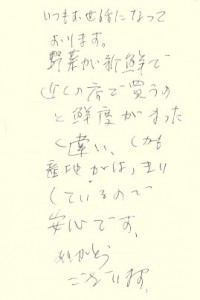 いつもお世話になって
おります。
野菜が新鮮で
近くの店で買うの
と鮮度がまった
く違い、しかも
産地がはっきり
しているので
安心です。
ありがとう
ございます。